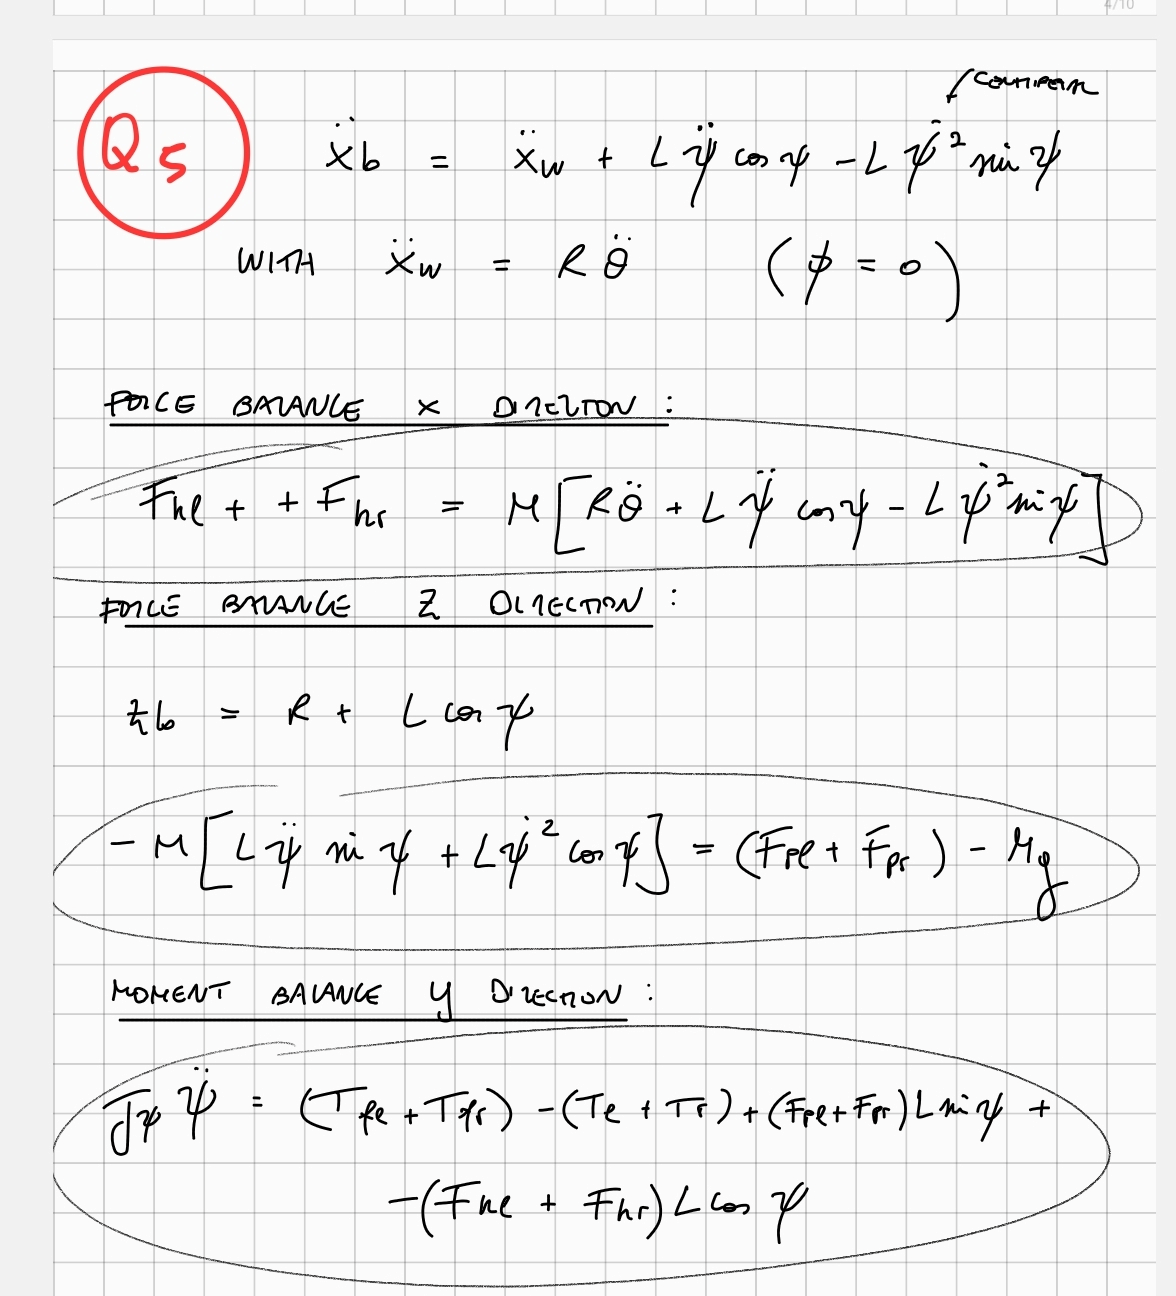 4/10
Q5
ẍb = ẍw + Lψ̈ cos ψ - Lψ̇² sin ψ
WITH ẍw = Rθ̈ (ϕ = 0)
FORCE BALANCE x DIRECTION :
Fhl + + Fhr = M[Rθ̈ + Lψ̈ cos ψ - Lψ̇² sin ψ]
FORCE BALANCE Z DIRECTION :
zb = R + L cos ψ
- M[Lψ̈ sin ψ + Lψ̇² cos ψ] = (Fpl + Fpr) - Mg
MOMENT BALANCE y DIRECTION :
Jψ ψ̈ = (Tfl + Tfr) - (Tl + Tr) + (Fpl + Fpr) L sin ψ +
-(Fhl + Fhr) L cos ψ